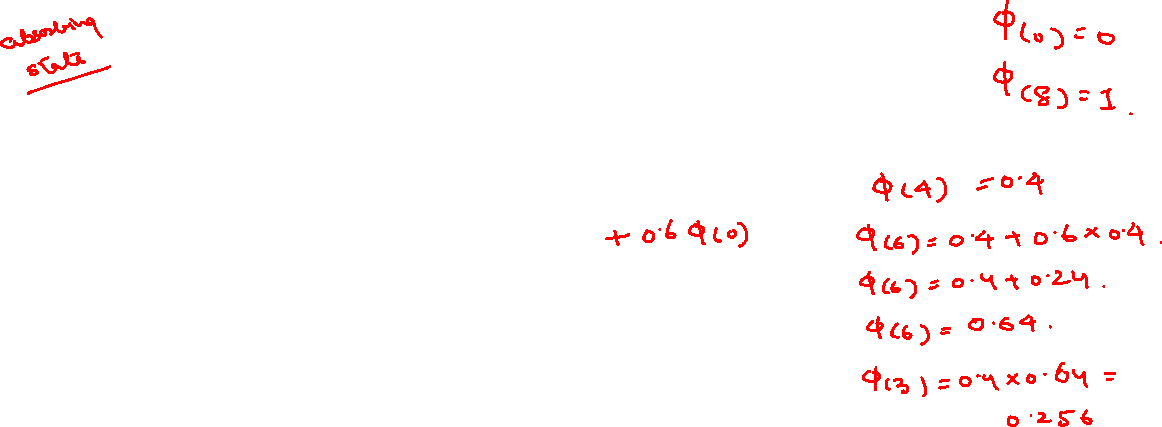 absorbing
state
ϕ(0)=0
ϕ(8)=1.
ϕ(4) =0.4
+ 0.6 ϕ(0)
ϕ(6)=0.4+0.6×0.4.
ϕ(6)=0.4+0.24.
ϕ(6)= 0.64.
ϕ(3)=0.4×0.64=
0.256